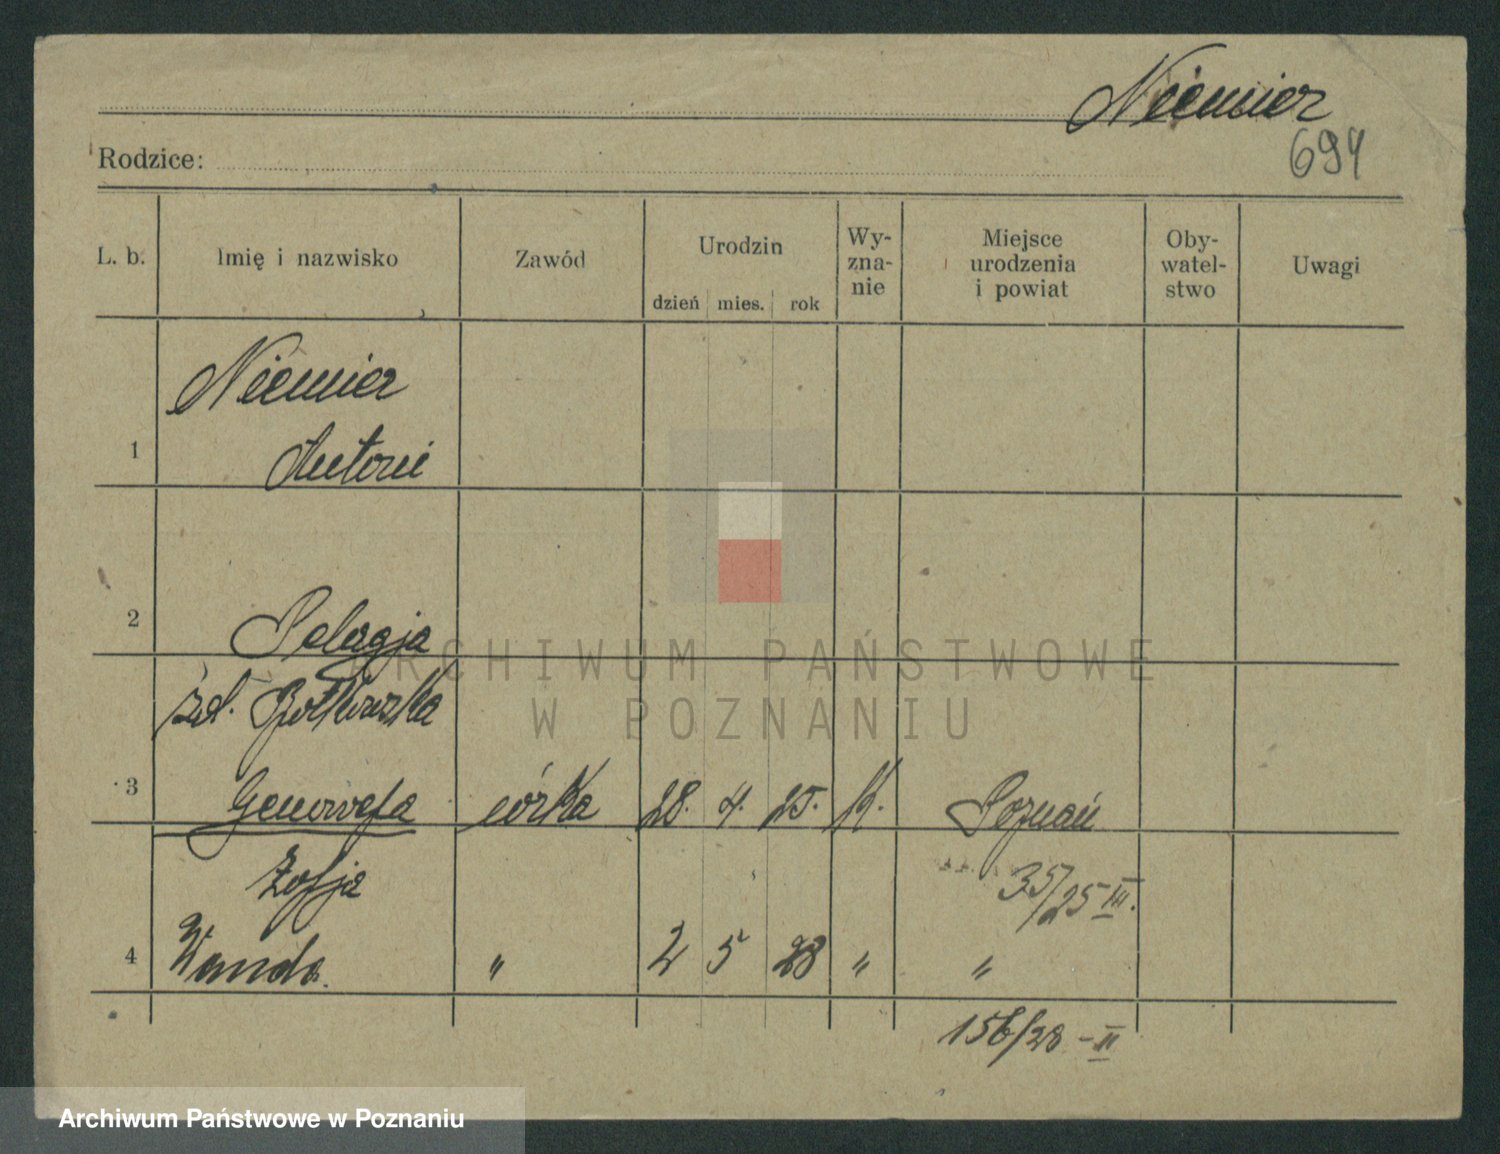 Niemier
694
Rodzice:
L. b.
Imię i nazwisko
Zawód
Urodzin
dzień mies. rok
Wy-
zna-
nie
Miejsce
urodzenia
i powiat
Oby-
watel-
stwo
Uwagi
Niemier
1 Antoni
2 Pelagja
3 Genowefa córka 28. 4. 25. K. Poznań
Zofja 35/25 III.
4 Wanda. " 2 5 28 " "
156/28 - III
ARCHIWUM PAŃSTWOWE
W POZNANIU
Archiwum Państwowe w Poznaniu